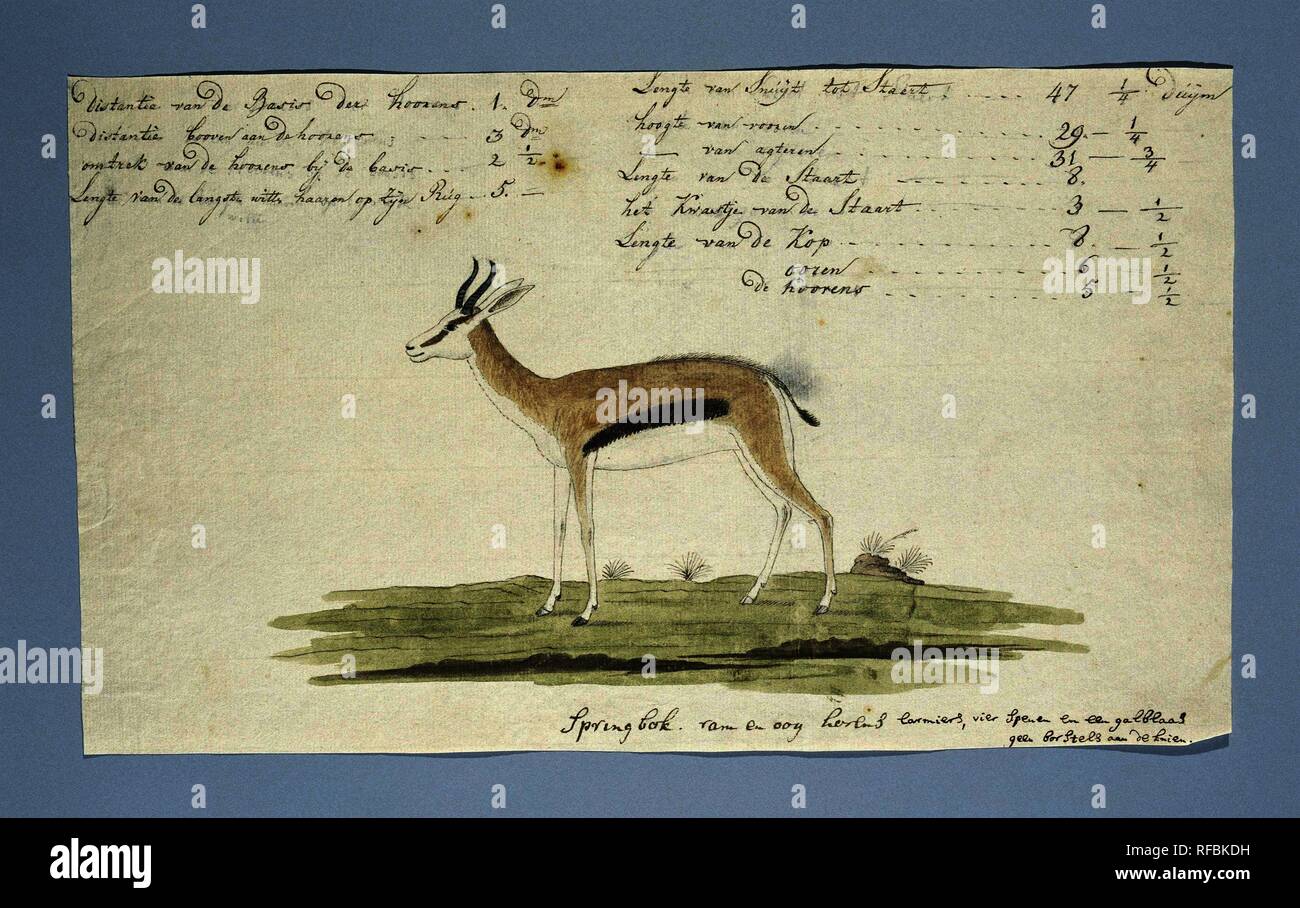 distantie van de Basis der hoorens . 1. Dm
distantie booven aan de hoorens 3 Dm
omtrek van de hoorens bij de basis 2 1/2
Lengte van de langste witte haaren op zijn Rúg 5. —
Lengte van Snúijt tot Staart 47 1/4 duijm
hoogte van vooren 29 — 1/4
— van agteren 31 — 3/4
Lengte van de Staart 8.
het Kwastje van de Staart 3 — 1/2
Lengte van de Kop 8 — 1/2
ooren 6 1/2
de hoorens 5 — 1/2
Springbok. ram en ooy horens larmiers, vier spenen en een galblaas
geen borstels aan de knien.
a alamy stock photo
alamy
Image ID: RFBKDH
www.alamy.com